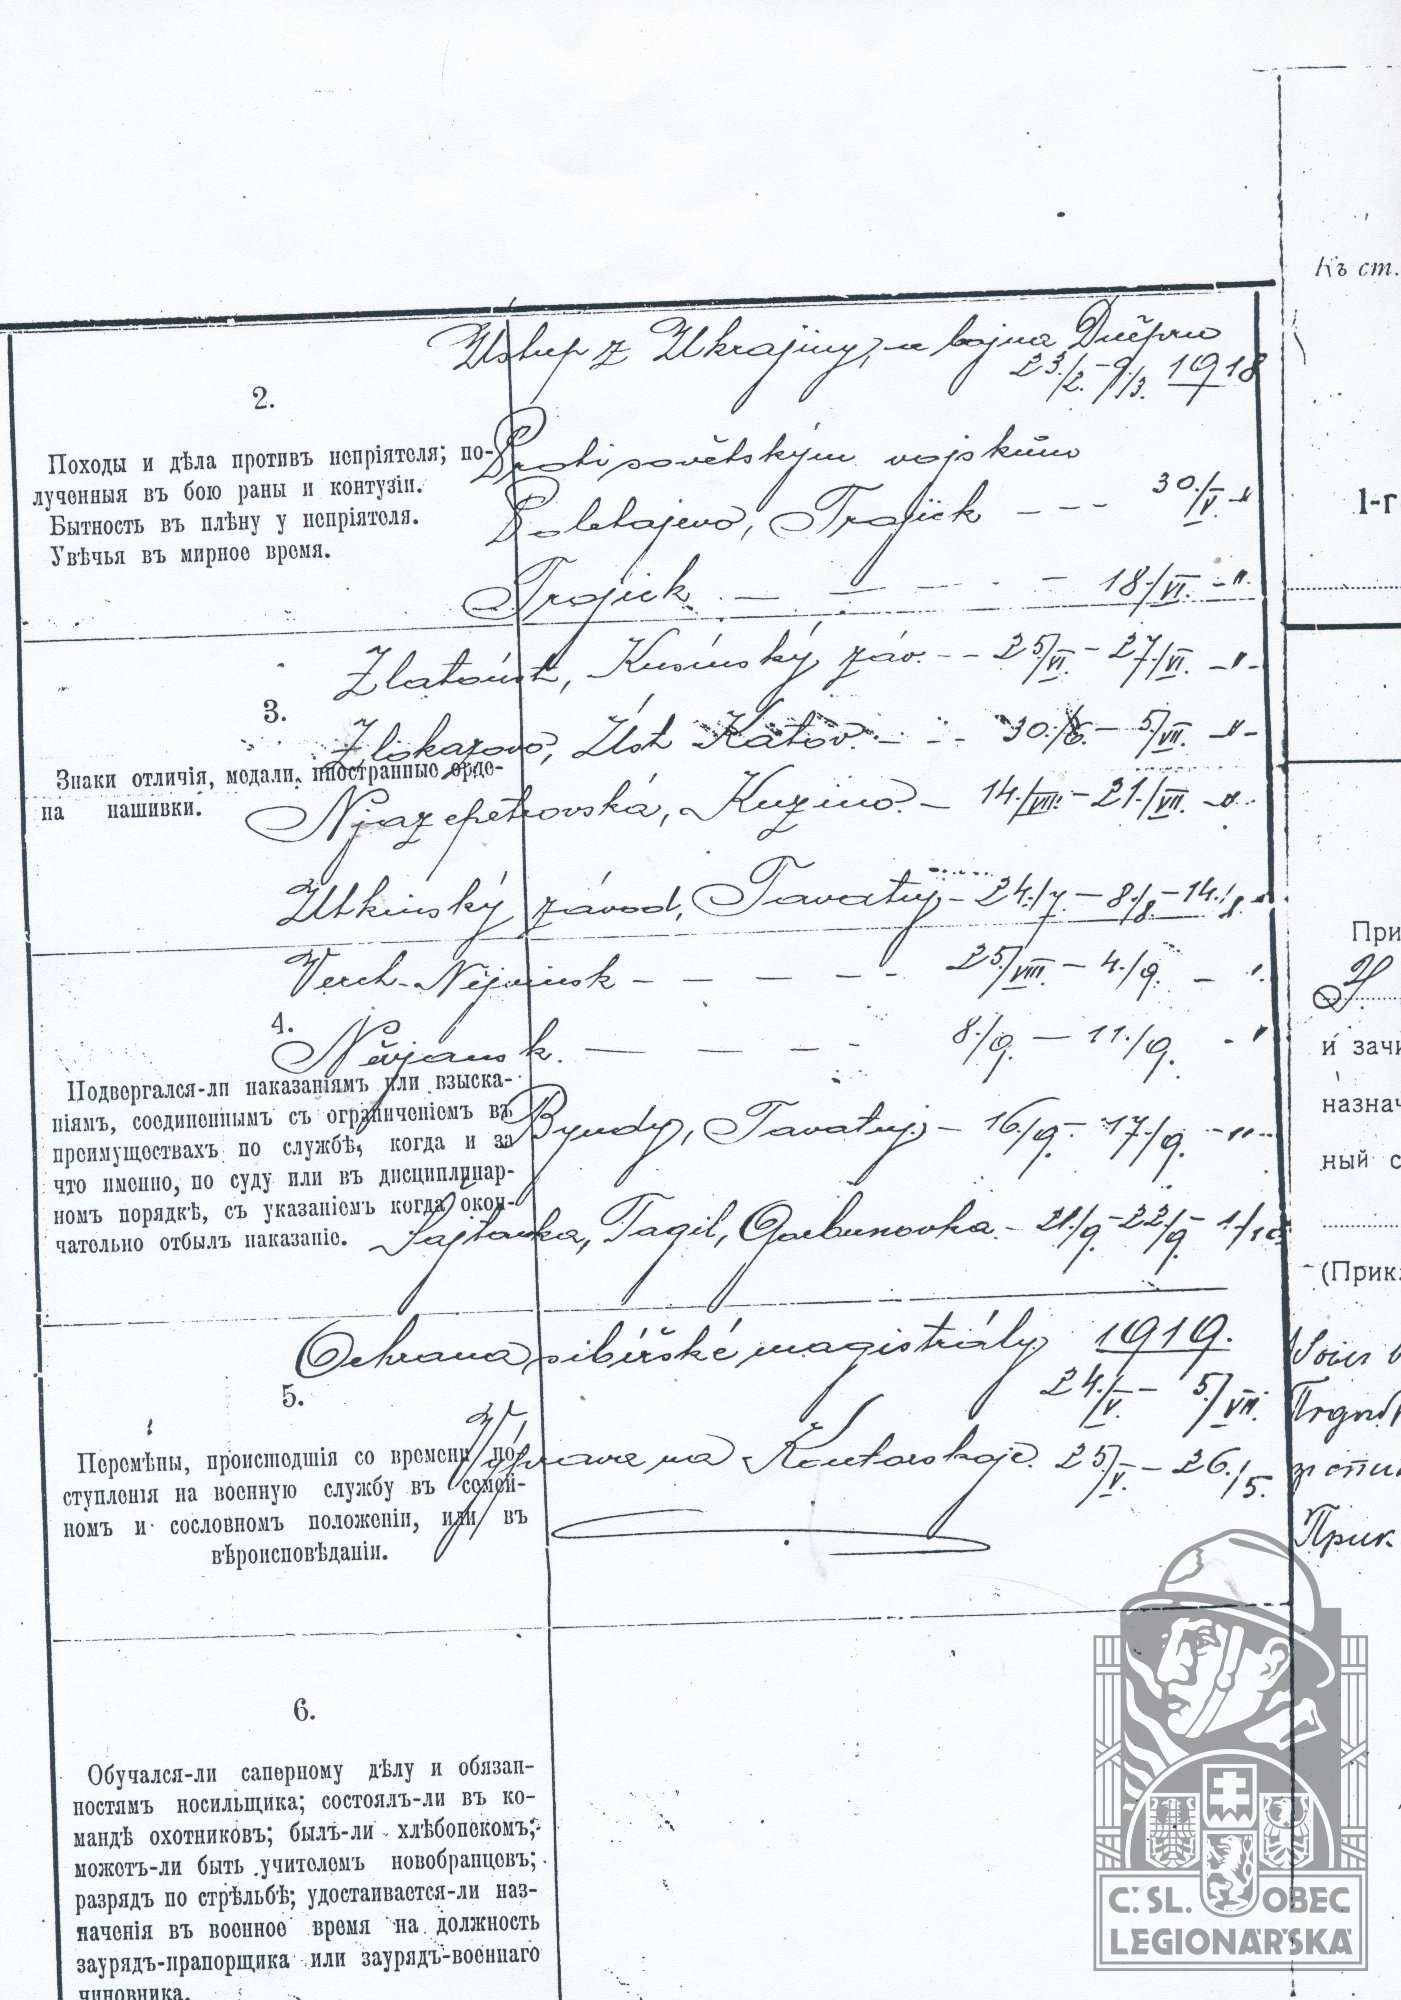 Къ ст.
Ústup z Ukrajiny, a bojna Dněpru
23./2.–9./3. 1918
2.
Походы и дѣла противъ непріятеля; по-
лученныя въ бою раны и контузіи.
Бытность въ плѣну у непріятеля.
Увѣчья въ мирное время.
Proti sovětským vojskům
Poletajevo, Trojick – – – 30./V. –"
1-г
Trojick – – – – 18./VI. –"
Zlatoúst, Kusinský záv. – – 25./VI. – 27./VI. –"–
3.
Zlokazovo, Úst Katov. – – – 30./6. – 5./VII. –"–
Знаки отличія, медали, иностранные орде-
на нашивки.
Njazepetrovská, Kuzino – 14./VII. – 21./VII. –"
Utkinský závod, Tavatuj – 24./7. – 8./8. – 14./8. "
При
Verch-Nějvinsk – – – – – 25./VIII. – 4./9. – "
4.
Něvjansk. – – – – 8./9. – 11./9. – "
и зачи
Подвергался-ли наказаніямъ или взыска-
ніямъ, соединеннымъ съ ограниченіемъ въ
преимуществахъ по службѣ, когда и за
что именно, по суду или въ дисциплинар-
номъ порядкѣ, съ указаніемъ когда окон-
чательно отбылъ наказаніе.
Byndy, Tavatuj – 16./9. – 17./9. –"–
назнач
ный с
Šajtanka, Tagil, Gorbunovka. – 21./9. – 22./9. – 1./10.
(Прик.
Ochrana sibiřské magistrály 1919.
24./V. – 5./VIII.
5.
Výprava na Kontorskoje. 25./V. – 26./5.
Перемѣны, происшедшія со времени по-
ступленія на военную службу въ семей-
номъ и сословномъ положеніи, или въ
вѣроисповѣданіи.
Прик.
6.
Обучался-ли саперному дѣлу и обязан-
ностямъ носильщика; состоялъ-ли въ ко-
мандѣ охотниковъ; былъ-ли хлѣбопекомъ;
можетъ-ли быть учителемъ новобранцевъ;
разрядъ по стрѣльбѣ; удостаивается-ли наз-
наченія въ военное время на должность
заурядъ-прапорщика или заурядъ-военнаго
чиновника.
Č. SL. OBEC
LEGIONÁŘSKÁ